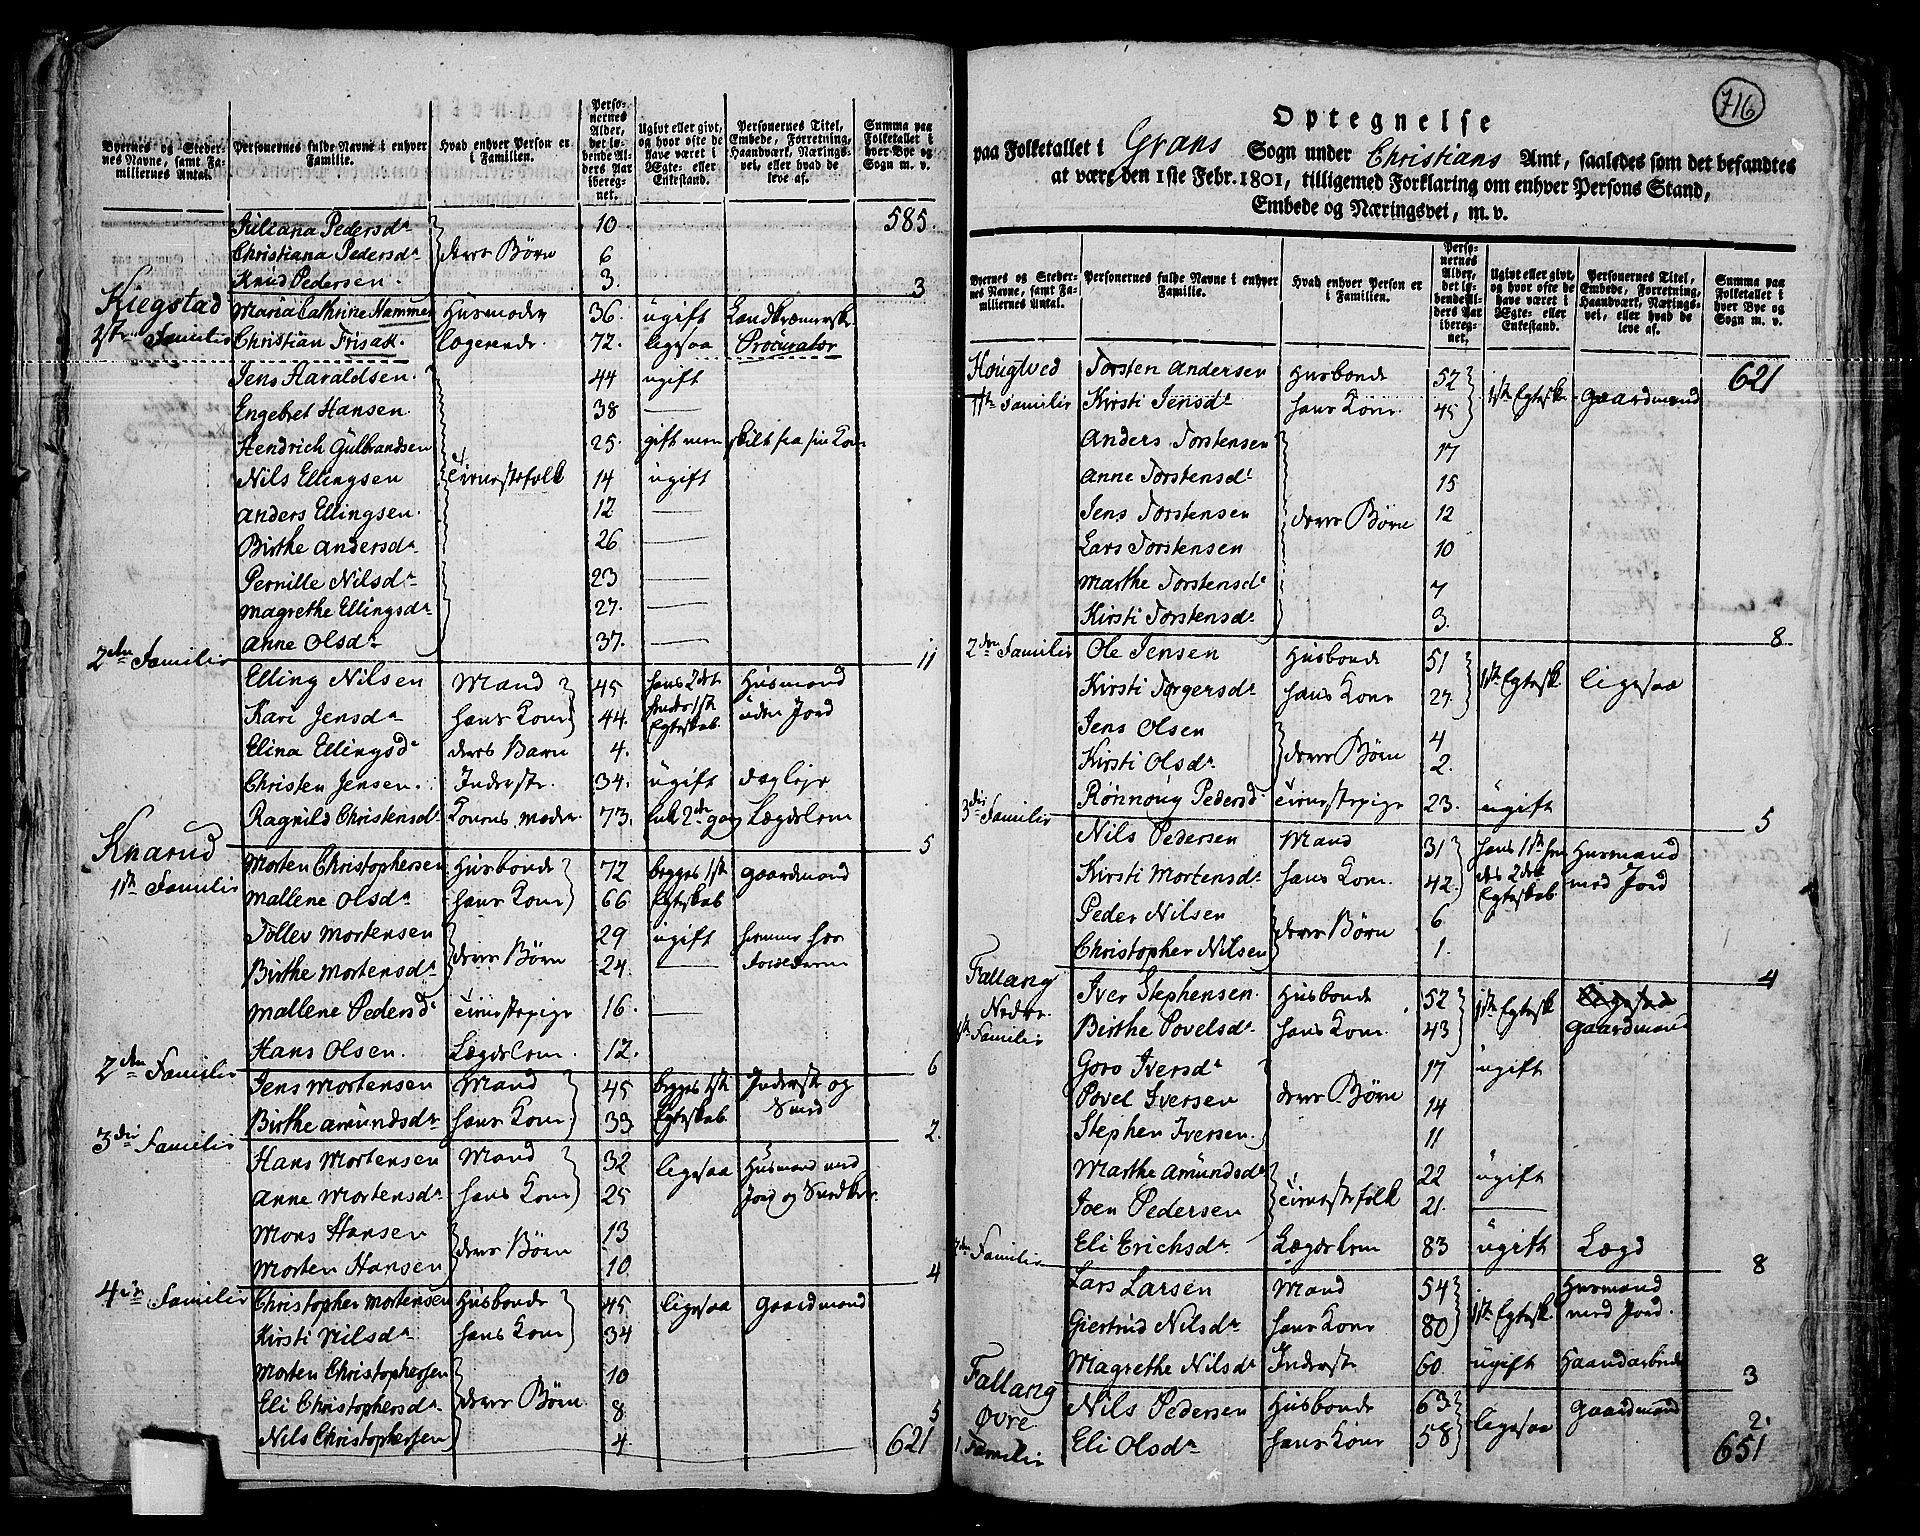 Byernes og Stedernes Navne, samt Familiernes Antal. | Personernes fulde Navne i enhver Familie. | Hvad enhver Person er i Familien. | Personernes Alder, det løbende Alders Aar iberegnet. | Ugivt eller givt, og hvor ofte de have været i Ægte- eller Enkestand. | Personernes Titel, Embede, Forretning, Haandværk, Næringsvei, eller hvad de leve af. | Summa paa Folketallet i hver Bye og Sogn m. v.
585.
Juliana Pedersdr 10
Christiana Pedersdr deres Børn 6
Knud Pedersen 3. 3
Kiegstad Maria Cathrine Hammer Husmoder 36. ugift Landkræmerske
1ste Familie Christian Frisak. Logerende 72. ligesaa Procurator
Jens Haraldsen. 44 ugift
Engebret Hansen 38 —
Hendrich Gulbrandsen 25. gift men skilt fra sin Kone
Nils Ellingsen Tienestefolk 14 ugift
Anders Ellingsen. 12 —
Birthe Andersdr 26 —
Pernille Nilsdr 23 —
Magrethe Ellingsdr 27. —
Anne Olsdr 37. — 11
2den Familie Elling Nilsen Mand 45 hans 2det Husmand
Kari Jensdr hans Kone 44. hendes 1ste Egteskab uden Jord
Elina Ellingsd deres Barn 4.
Christen Jensen. Inderste 34. ugift Dagleje
Ragnild Christensdr Konens Moder 73. Enk 2den gang Lægdslem 5
Knarud Morten Christophersen Husbonde 72 begges 1ste Gaardmand
1ste Familie Mallene Olsdr hans Kone 66 Egteskab
Tollev Mortensen deres Børn 29 ugift hiemme hos
Birthe Mortensdr 24 — Forældrene
Mallene Pedersd Tienestepige 16. —
Hans Olsen. Lægdslem. 12. 6
2den Familie Jens Mortensen Mand 45 begges 1ste Inderste og
Birthe Amundsdr hans Kone. 33 Egteskab Smed 2.
3die Familie Hans Mortensen Mand 32 ligesaa Husmand med
Anne Mortensdr hans Kone 25 Jord og Snedker.
Mons Hansen deres Børn 13
Morten Hansen 10 4
4de Familie Christopher Mortensen Husbonde 45 ligesaa Gaardmand
Kirsti Nilsdr hans Kone 34
Morten Christophersen 10
Eli Christophersdr deres Børn 8
Nils Christophersen 4. 5
621
716
Optegnelse
paa Folketallet i Grans Sogn under Christians Amt, saaledes som det befandtes
at være den 1ste Febr. 1801, tilligemed Forklaring om enhver Persons Stand,
Embede og Næringsvei, m. v.
Byernes og Stedernes Navne, samt Familiernes Antal. | Personernes fulde Navne i enhver Familie. | Hvad enhver Person er i Familien. | Personernes Alder, det løbende Alders Aar iberegnet. | Ugivt eller givt, og hvor ofte de have været i Ægte- eller Enkestand. | Personernes Titel, Embede, Forretning, Haandværk, Næringsvei, eller hvad de leve af. | Summa paa Folketallet i hver Bye og Sogn m. v.
621
Hougtved Torsten Andersen Husbonde 52 1ste Egtesk. Gaardmand
1ste Familie Kirsti Jensdr hans Kone. 45
Anders Torstensen 17
Anne Torstensdr 15
Jens Torstensen deres Børn 12
Lars Torstensen 10
Marthe Torstensdr 7
Kirsti Torstensdr 3. 8
2den Familie Ole Jensen Husbonde 51 1ste Egtesk ligesaa
Kirsti Torgersdr hans Kone 27.
Jens Olsen deres Børn 4
Kirsti Olsdr 2.
Rønnoug Pedersd Tienestepige 23. ugift 5
3die Familie Nils Pedersen Mand 31 hans 1ste hen Husmand
Kirsti Mortensdr hans Kone. 42. des 2det Egteskab med Jord
Peder Nilsen deres Børn 6
Christopher Nilsen 1. 4
Fallang Iver Stephensen. Husbonde 52 1ste Egtesk
Nedre. Birthe Povelsdr hans Kone. 43 Gaardmand
1ste Familie
Goro Iversdr 17 ugift
Povel Iversen deres Børn 14
Stephen Iversen. 11
Marthe Amundsdr Tienestefolk 22 ugift
Joen Pedersen 21. —
Eli Erichsdr Lægdslem 83 ugift Lægd 8
2den Familie Lars Larsen Mand 54 1ste Egtesk. Husmand
Giertrud Nilsdr hans Kone 80 med Jord.
Magrethe Nilsdr Inderste 60 ugift Haandarbeide 3
Fallang Nils Pedersen Husbonde 63. ligesaa Gaardmand
Øvre Eli Olsdr hans Kone 58 2.
1 Familie
651